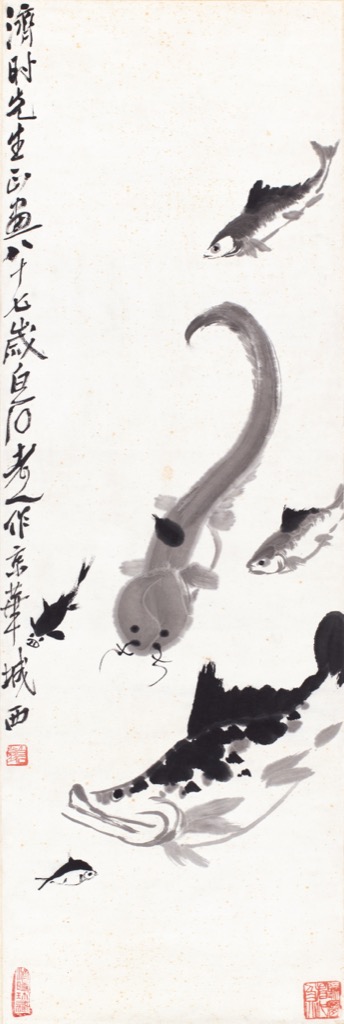 濟时先生正畫八十七歲白石老人作京華城西